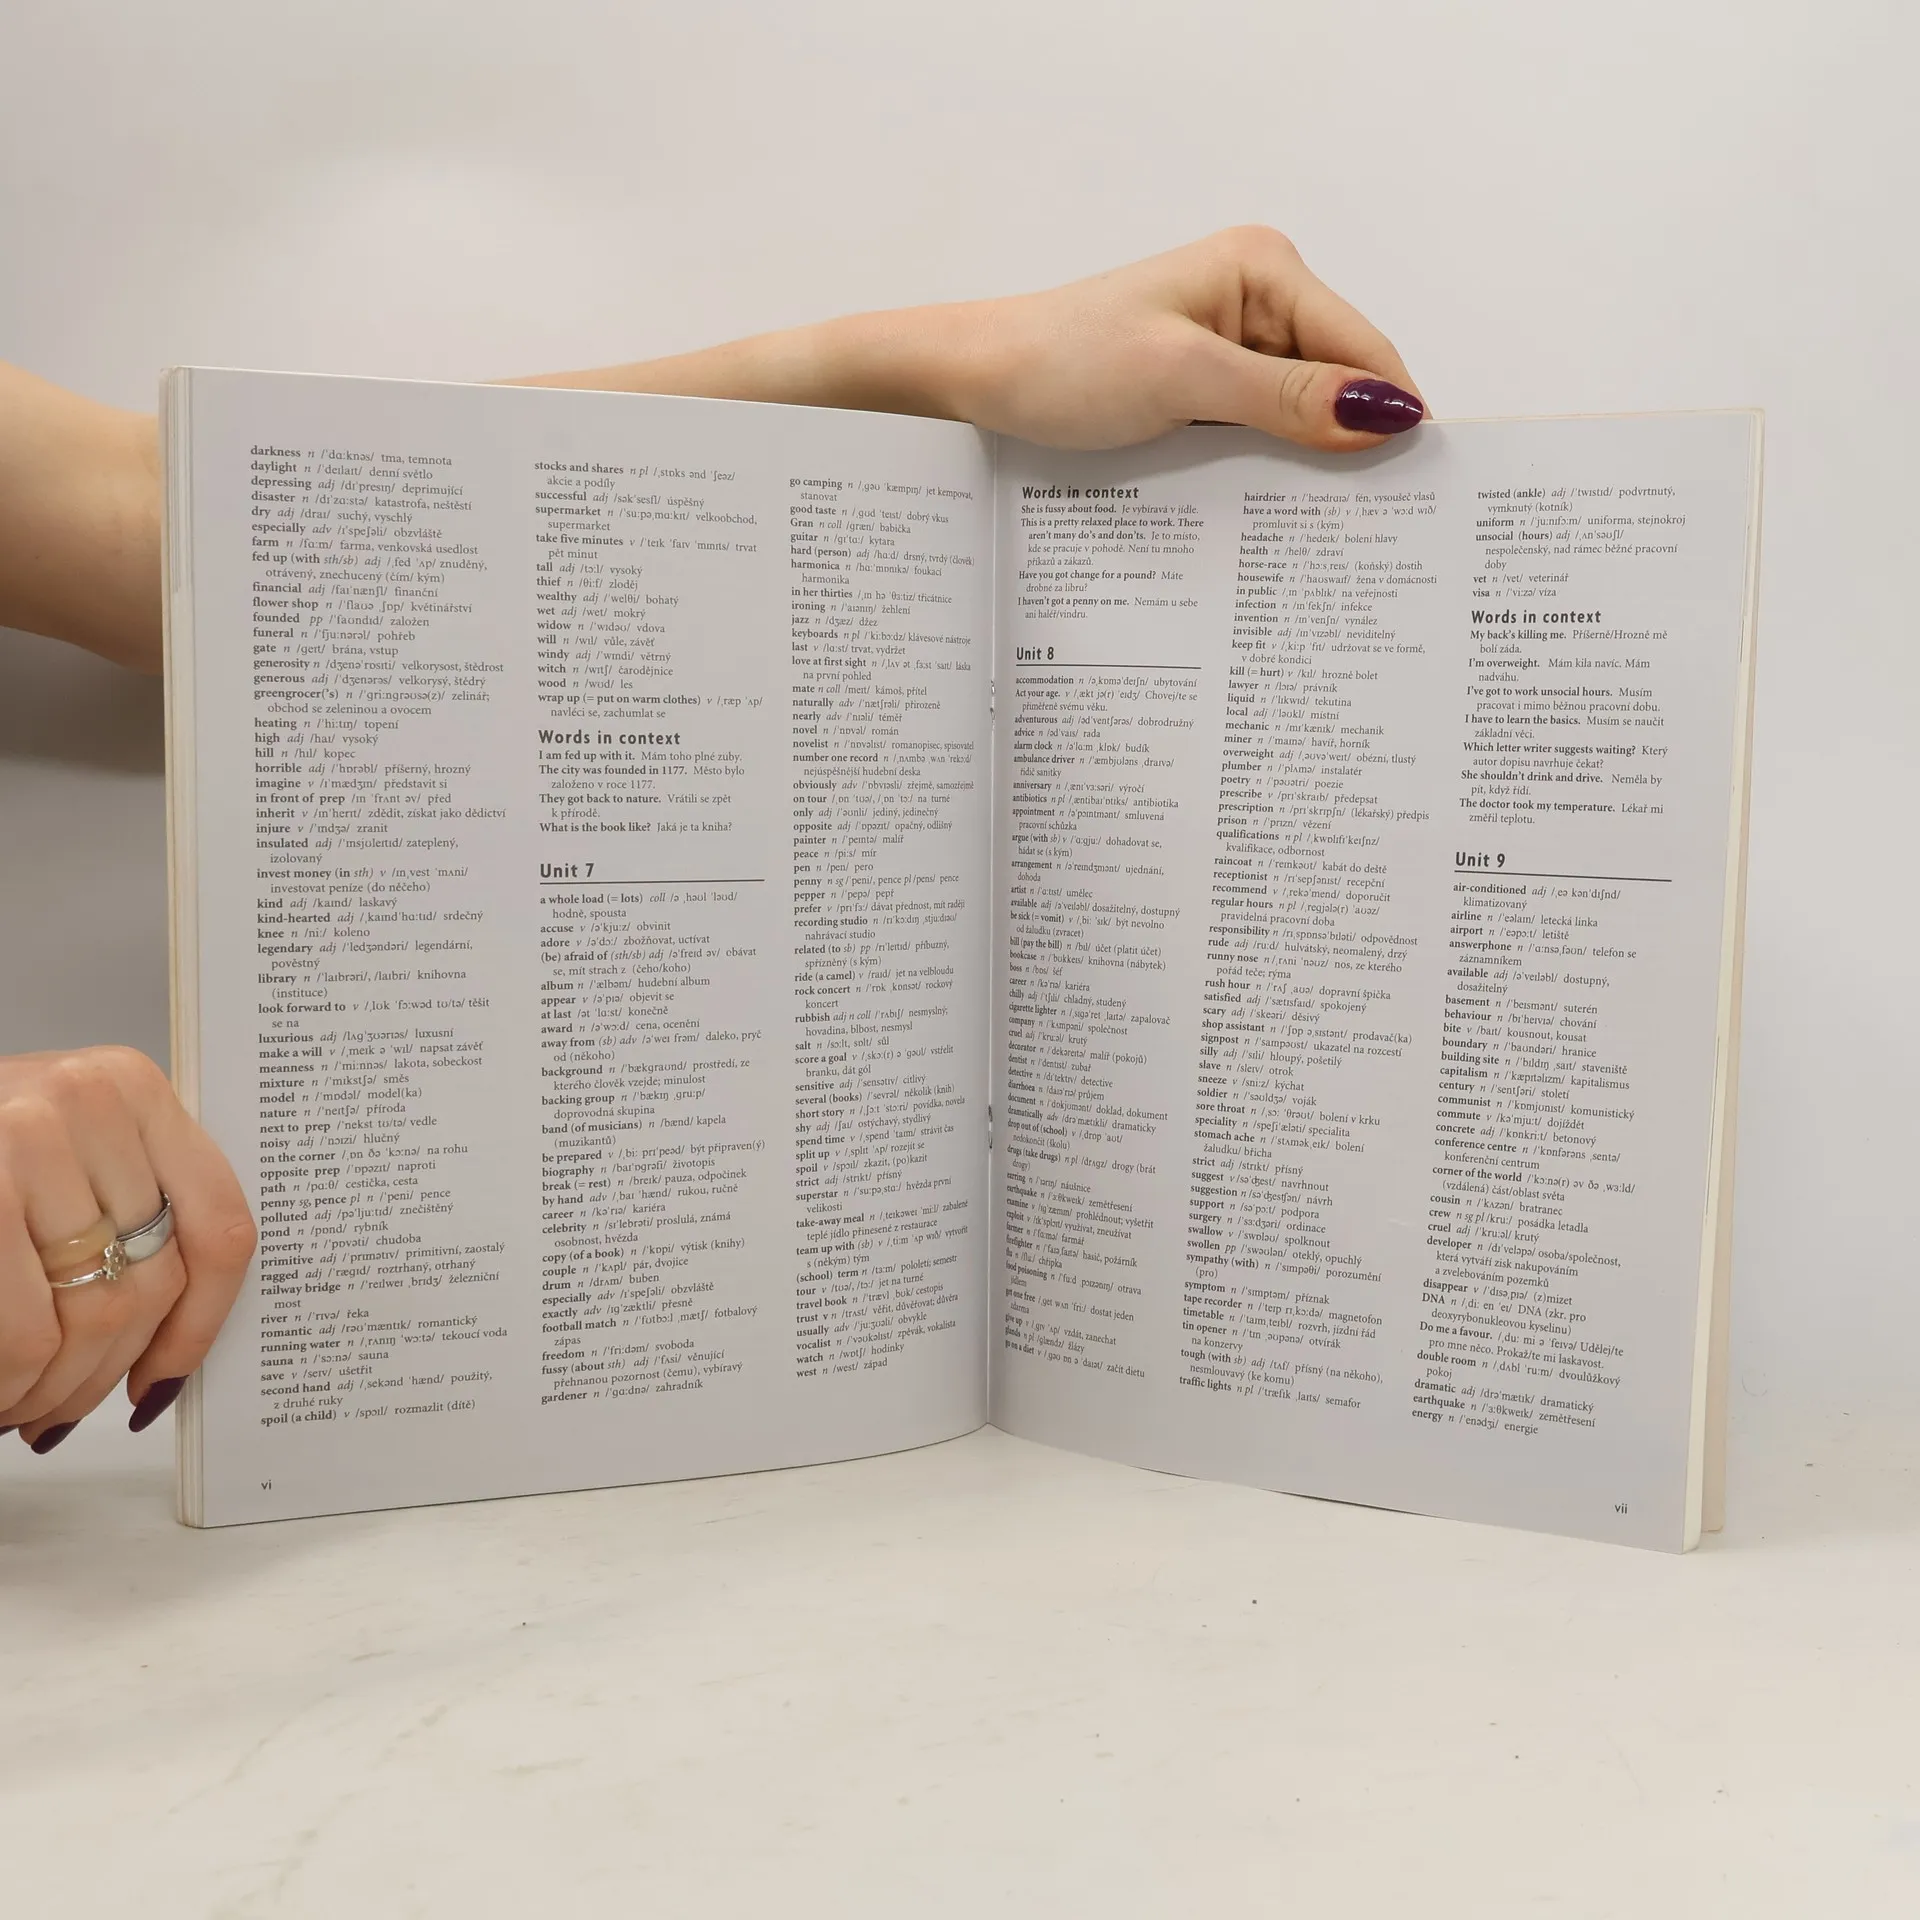 darkness n /ˈdɑːknəs/ tma, temnota
daylight n /ˈdeɪlaɪt/ denní světlo
depressing adj /dɪˈpresɪŋ/ deprimující
disaster n /dɪˈzɑːstə/ katastrofa, neštěstí
dry adj /draɪ/ suchý, vyschlý
especially adv /ɪˈspeʃəli/ obzvláště
farm n /fɑːm/ farma, venkovská usedlost
fed up (with sth/sb) adj /ˌfed ˈʌp/ znuděný,
otrávený, znechucený (čím/ kým)
financial adj /faɪˈnænʃl/ finanční
flower shop n /ˈflaʊə ˌʃɒp/ květinářství
founded pp /ˈfaʊndɪd/ založen
funeral n /ˈfjuːnərəl/ pohřeb
gate n /geɪt/ brána, vstup
generosity n /dʒenəˈrɒsɪti/ velkorysost, štědrost
generous adj /ˈdʒenərəs/ velkorysý, štědrý
greengrocer('s) n /ˈgriːngrəʊsə(z)/ zelinář;
obchod se zeleninou a ovocem
heating n /ˈhiːtɪŋ/ topení
high adj /haɪ/ vysoký
hill n /hɪl/ kopec
horrible adj /ˈhɒrəbl/ příšerný, hrozný
imagine v /ɪˈmædʒɪn/ představit si
in front of prep /ɪn ˈfrʌnt əv/ před
inherit v /ɪnˈherɪt/ zdědit, získat jako dědictví
injure v /ˈɪndʒə/ zranit
insulated adj /ˈɪnsjuleɪtɪd/ zateplený,
izolovaný
invest money (in sth) v /ɪnˌvest ˈmʌni/
investovat peníze (do něčeho)
kind adj /kaɪnd/ laskavý
kind-hearted adj /ˌkaɪndˈhɑːtɪd/ srdečný
knee n /niː/ koleno
legendary adj /ˈledʒəndəri/ legendární,
pověstný
library n /ˈlaɪbrəri/, /laɪbri/ knihovna
(instituce)
look forward to v /ˌlʊk ˈfɔːwəd tʊ/tə/ těšit
se na
luxurious adj /lʌgˈʒʊərɪəs/ luxusní
make a will v /ˌmeɪk ə ˈwɪl/ napsat závěť
meanness n /ˈmiːnnəs/ lakota, sobeckost
mixture n /ˈmɪkstʃə/ směs
model n /ˈmɒdəl/ model(ka)
nature n /ˈneɪtʃə/ příroda
next to prep /ˈnekst tʊ/tə/ vedle
noisy adj /ˈnɔɪzi/ hlučný
on the corner /ˌɒn ðə ˈkɔːnə/ na rohu
opposite prep /ˈɒpəzɪt/ naproti
path n /pɑːθ/ cestička, cesta
penny sg, pence pl n /ˈpeni/ pence
polluted adj /pəˈljuːtɪd/ znečištěný
pond n /pɒnd/ rybník
poverty n /ˈpɒvəti/ chudoba
primitive adj /ˈprɪmətɪv/ primitivní, zaostalý
ragged adj /ˈrægɪd/ roztrhaný, otrhaný
railway bridge n /ˈreɪlweɪ ˌbrɪdʒ/ železniční
most
river n /ˈrɪvə/ řeka
romantic adj /rəʊˈmæntɪk/ romantický
running water n /ˌrʌnɪŋ ˈwɔːtə/ tekoucí voda
sauna n /ˈsɔːnə/ sauna
save v /seɪv/ ušetřit
second hand adj /ˌsekənd ˈhænd/ použitý,
z druhé ruky
spoil (a child) v /spɔɪl/ rozmazlit (dítě)
vi
stocks and shares n pl /ˌstɒks ənd ˈʃeəz/
akcie a podíly
successful adj /səkˈsesfl/ úspěšný
supermarket n /ˈsuːpəˌmɑːkɪt/ velkoobchod,
supermarket
take five minutes v /ˈteɪk ˈfaɪv ˈmɪnɪts/ trvat
pět minut
tall adj /tɔːl/ vysoký
thief n /θiːf/ zloděj
wealthy adj /ˈwelθi/ bohatý
wet adj /wet/ mokrý
widow n /ˈwɪdəʊ/ vdova
will n /wɪl/ vůle, závěť
windy adj /ˈwɪndi/ větrný
witch n /wɪtʃ/ čarodějnice
wood n /wʊd/ les
wrap up (= put on warm clothes) v /ˌræp ˈʌp/
navléci se, zachumlat se
Words in context
I am fed up with it. Mám toho plné zuby.
The city was founded in 1177. Město bylo
založeno v roce 1177.
They got back to nature. Vrátili se zpět
k přírodě.
What is the book like? Jaká je ta kniha?
Unit 7
a whole load (= lots) coll /ə ˌhəʊl ˈləʊd/
hodně, spousta
accuse v /əˈkjuːz/ obvinit
adore v /əˈdɔː/ zbožňovat, uctívat
(be) afraid of (sth/sb) adj /əˈfreɪd əv/ obávat
se, mít strach z (čeho/koho)
album n /ˈælbəm/ hudební album
appear v /əˈpɪə/ objevit se
at last /ət ˈlɑːst/ konečně
award n /əˈwɔːd/ cena, ocenění
away from (sb) adv /əˈweɪ frəm/ daleko, pryč
od (někoho)
background n /ˈbækgraʊnd/ prostředí, ze
kterého člověk vzejde; minulost
backing group n /ˈbækɪŋ ˌgruːp/
doprovodná skupina
band (of musicians) n /bænd/ kapela
(muzikantů)
be prepared v /ˌbiː prɪˈpeəd/ být připraven(ý)
biography n /baɪˈɒgrəfi/ životopis
break (= rest) n /breɪk/ pauza, odpočinek
by hand adv /ˌbaɪ ˈhænd/ rukou, ručně
career n /kəˈrɪə/ kariéra
celebrity n /sɪˈlebrəti/ proslulá, známá
osobnost, hvězda
copy (of a book) n /ˈkɒpi/ výtisk (knihy)
couple n /ˈkʌpl/ pár, dvojice
drum n /drʌm/ buben
especially adv /ɪˈspeʃəli/ obzvláště
exactly adv /ɪgˈzæktli/ přesně
football match n /ˈfʊtbɔːl ˌmætʃ/ fotbalový
zápas
freedom n /ˈfriːdəm/ svoboda
fussy (about sth) adj /ˈfʌsi/ věnující
přehnanou pozornost (čemu), vybíravý
gardener n /ˈgɑːdnə/ zahradník
go camping n /ˌgəʊ ˈkæmpɪŋ/ jet kempovat,
stanovat
good taste n /ˌgʊd ˈteɪst/ dobrý vkus
Gran n coll /græn/ babička
guitar n /gɪˈtɑː/ kytara
hard (person) adj /hɑːd/ drsný, tvrdý (člověk)
harmonica n /hɑːˈmɒnɪkə/ foukací
harmonika
in her thirties /ˌɪn hə ˈθɜːtiz/ třicátnice
ironing n /ˈaɪənɪŋ/ žehlení
jazz n /dʒæz/ džez
keyboards n pl /ˈkiːbɔːdz/ klávesové nástroje
last v /lɑːst/ trvat, vydržet
love at first sight n /ˌlʌv ət ˌfɜːst ˈsaɪt/ láska
na první pohled
mate n coll /meɪt/ kámoš, přítel
naturally adv /ˈnætʃrəli/ přirozeně
nearly adv /ˈnɪəli/ téměř
novel n /ˈnɒvəl/ román
novelist n /ˈnɒvəlɪst/ romanopisec, spisovatel
number one record n /ˌnʌmbə wʌn ˈrekɔːd/
nejúspěšnější hudební deska
obviously adv /ˈɒbvɪəsli/ zřejmě, samozřejmě
on tour /ˌɒn ˈtʊə/, /ˌɒn ˈtɔː/ na turné
only adj /ˈəʊnli/ jediný, jedinečný
opposite adj /ˈɒpəzɪt/ opačný, odlišný
painter n /ˈpeɪntə/ malíř
peace n /piːs/ mír
pen n /pen/ pero
penny n sg /ˈpeni/, pence pl /pens/ pence
pepper n /ˈpepə/ pepř
prefer v /prɪˈfɜː/ dávat přednost, mít raději
recording studio n /rɪˈkɔːdɪŋ ˌstjuːdɪəʊ/
nahrávací studio
related (to sb) pp /rɪˈleɪtɪd/ příbuzný,
spřízněný (s kým)
ride (a camel) v /raɪd/ jet na velbloudu
rock concert n /ˈrɒk ˌkɒnsət/ rockový
koncert
rubbish adj n coll /ˈrʌbɪʃ/ nesmyslný;
hovadina, blbost, nesmysl
salt n /sɔːlt, sɒlt/ sůl
score a goal v /ˌskɔː(r) ə ˈgəʊl/ vstřelit
branku, dát gól
sensitive adj /ˈsensətɪv/ citlivý
several (books) /ˈsevrəl/ několik (knih)
short story n /ˌʃɔːt ˈstɔːri/ povídka, novela
shy adj /ʃaɪ/ ostýchavý, stydlivý
spend time v /ˌspend ˈtaɪm/ strávit čas
split up v /ˌsplɪt ˈʌp/ rozejít se
spoil v /spɔɪl/ zkazit, (po)kazit
strict adj /strɪkt/ přísný
superstar n /ˈsuːpəˌstɑː/ hvězda první
velikosti
take-away meal n /ˌteɪkəweɪ ˈmiːl/ zabalené
teplé jídlo přinesené z restaurace
team up with (sb) v /ˌtiːm ˈʌp wɪð/ vytvořit
s (někým) tým
(school) term n /tɜːm/ pololetí; semestr
tour v /tʊə/, /tɔː/ jet na turné
travel book n /ˈtrævl ˌbʊk/ cestopis
trust v n /trʌst/ věřit, důvěřovat; důvěra
usually adv /ˈjuːʒʊəli/ obvykle
vocalist n /ˈvəʊkəlɪst/ zpěvák, vokalista
watch n /wɒtʃ/ hodinky
west n /west/ západ
Words in context
She is fussy about food. Je vybíravá v jídle.
This is a pretty relaxed place to work. There
aren't many do's and don'ts. Je to místo,
kde se pracuje v pohodě. Není tu mnoho
příkazů a zákazů.
Have you got change for a pound? Máte
drobné za libru?
I haven't got a penny on me. Nemám u sebe
ani haléř/vindru.
Unit 8
accommodation n /əˌkɒməˈdeɪʃn/ ubytování
Act your age. v /ˌækt jə(r) ˈeɪdʒ/ Chovej/te se
přiměřeně svému věku.
adventurous adj /ədˈventʃərəs/ dobrodružný
advice n /ədˈvaɪs/ rada
alarm clock n /əˈlɑːm ˌklɒk/ budík
ambulance driver n /ˈæmbjələns ˌdraɪvə/
řidič sanitky
anniversary n /ˌænɪˈvɜːsəri/ výročí
antibiotics n pl /ˌæntibaɪˈɒtɪks/ antibiotika
appointment n /əˈpɔɪntmənt/ smluvená
pracovní schůzka
argue (with sb) v /ˈɑːgjuː/ dohadovat se,
hádat se (s kým)
arrangement n /əˈreɪndʒmənt/ ujednání,
dohoda
artist n /ˈɑːtɪst/ umělec
available adj /əˈveɪləbl/ dosažitelný, dostupný
be sick (= vomit) v /ˌbiː ˈsɪk/ být nevolno
od žaludku (zvracet)
bill (pay the bill) n /bɪl/ účet (platit účet)
bookcase n /ˈbʊkkeɪs/ knihovna (nábytek)
boss n /bɒs/ šéf
career n /kəˈrɪə/ kariéra
chilly adj /ˈtʃɪli/ chladný, studený
cigarette lighter n /ˌsɪgəˈret ˌlaɪtə/ zapalovač
company n /ˈkʌmpəni/ společnost
cruel adj /ˈkruːəl/ krutý
decorator n /ˈdekəreɪtə/ malíř (pokojů)
dentist n /ˈdentɪst/ zubař
detective n /dɪˈtektɪv/ detective
diarrhoea n /daɪəˈrɪə/ průjem
document n /ˈdɒkjumənt/ doklad, dokument
dramatically adv /drəˈmætɪkli/ dramaticky
drop out of (school) v /ˌdrɒp ˈaʊt/
nedokončit (školu)
drugs (take drugs) n pl /drʌgz/ drogy (brát
drogy)
earring n /ˈɪərɪŋ/ náušnice
earthquake n /ˈɜːθkweɪk/ zemětřesení
examine v /ɪgˈzæmɪn/ prohlédnout; vyšetřit
exploit v /ɪkˈsplɔɪt/ využívat, zneužívat
farmer n /ˈfɑːmə/ farmář
firefighter n /ˈfaɪəˌfaɪtə/ hasič, požárník
flu n /fluː/ chřipka
food poisoning n /ˈfuːd ˌpɔɪzənɪŋ/ otrava
jídlem
get one free /ˌget wʌn ˈfriː/ dostat jeden
zdarma
give up v /ˌgɪv ˈʌp/ vzdát, zanechat
glands n pl /glændz/ žlázy
go on a diet v /ˌgəʊ ɒn ə ˈdaɪət/ začít dietu
hairdrier n /ˈheədraɪə/ fén, vysoušeč vlasů
have a word with (sb) v /ˌhæv ə ˈwɜːd wɪð/
promluvit si s (kým)
headache n /ˈhedeɪk/ bolení hlavy
health n /helθ/ zdraví
horse-race n /ˈhɔːsˌreɪs/ (koňský) dostih
housewife n /ˈhaʊswaɪf/ žena v domácnosti
in public /ˌɪn ˈpʌblɪk/ na veřejnosti
infection n /ɪnˈfekʃn/ infekce
invention n /ɪnˈvenʃn/ vynález
invisible adj /ɪnˈvɪzəbl/ neviditelný
keep fit v /ˌkiːp ˈfɪt/ udržovat se ve formě,
v dobré kondici
kill (= hurt) v /kɪl/ hrozně bolet
lawyer n /lɔɪə/ právník
liquid n /ˈlɪkwɪd/ tekutina
local adj /ˈləʊkl/ místní
mechanic n /mɪˈkænɪk/ mechanik
miner n /ˈmaɪnə/ havíř, horník
overweight adj /ˌəʊvəˈweɪt/ obézní, tlustý
plumber n /ˈplʌmə/ instalatér
poetry n /ˈpəʊətri/ poezie
prescribe v /prɪˈskraɪb/ předepsat
prescription n /prɪˈskrɪpʃn/ (lékařský) předpis
prison n /ˈprɪzn/ vězení
qualifications n pl /ˌkwɒlɪfɪˈkeɪʃnz/
kvalifikace, odbornost
raincoat n /ˈreɪnkəʊt/ kabát do deště
receptionist n /rɪˈsepʃənɪst/ recepční
recommend v /ˌrekəˈmend/ doporučit
regular hours n pl /ˌregjələ(r) ˈaʊəz/
pravidelná pracovní doba
responsibility n /rɪˌspɒnsəˈbɪləti/ odpovědnost
rude adj /ruːd/ hulvátský, neomalený, drzý
runny nose n /ˌrʌni ˈnəʊz/ nos, ze kterého
pořád teče; rýma
rush hour n /ˈrʌʃ ˌaʊə/ dopravní špička
satisfied adj /ˈsætɪsfaɪd/ spokojený
scary adj /ˈskeəri/ děsivý
shop assistant n /ˈʃɒp əˌsɪstənt/ prodavač(ka)
signpost n /ˈsaɪnpəʊst/ ukazatel na rozcestí
silly adj /ˈsɪli/ hloupý, pošetilý
slave n /sleɪv/ otrok
sneeze v /sniːz/ kýchat
soldier n /ˈsəʊldʒə/ voják
sore throat n /ˌsɔː ˈθrəʊt/ bolení v krku
speciality n /speʃiˈæləti/ specialita
stomach ache n /ˈstʌmək ˌeɪk/ bolení
žaludku/ břicha
strict adj /strɪkt/ přísný
suggest v /səˈdʒest/ navrhnout
suggestion n /səˈdʒestʃən/ návrh
support n /səˈpɔːt/ podpora
surgery n /ˈsɜːdʒəri/ ordinace
swallow v /ˈswɒləʊ/ spolknout
swollen pp /ˈswəʊlən/ oteklý, opuchlý
sympathy (with) n /ˈsɪmpəθi/ porozumění
(pro)
symptom n /ˈsɪmptəm/ příznak
tape recorder n /ˈteɪp rɪˌkɔːdə/ magnetofon
timetable n /ˈtaɪmˌteɪbl/ rozvrh, jízdní řád
tin opener n /ˈtɪn ˌəʊpənə/ otvírák
na konzervy
tough (with sb) adj /tʌf/ přísný (na někoho),
nesmlouvavý (ke komu)
traffic lights n pl /ˈtræfɪk ˌlaɪts/ semafor
twisted (ankle) adj /ˈtwɪstɪd/ podvrtnutý,
vymknutý (kotník)
uniform n /ˈjuːnɪfɔːm/ uniforma, stejnokroj
unsocial (hours) adj /ˌʌnˈsəʊʃl/
nespolečenský, nad rámec běžné pracovní
doby
vet n /vet/ veterinář
visa n /ˈviːzə/ víza
Words in context
My back's killing me. Příšerně/Hrozně mě
bolí záda.
I'm overweight. Mám kila navíc. Mám
nadváhu.
I've got to work unsocial hours. Musím
pracovat i mimo běžnou pracovní dobu.
I have to learn the basics. Musím se naučit
základní věci.
Which letter writer suggests waiting? Který
autor dopisu navrhuje čekat?
She shouldn't drink and drive. Neměla by
pít, když řídí.
The doctor took my temperature. Lékař mi
změřil teplotu.
Unit 9
air-conditioned adj /ˌeə kənˈdɪʃnd/
klimatizovaný
airline n /ˈeəlaɪn/ letecká linka
airport n /ˈeəpɔːt/ letiště
answerphone n /ˈɑːnsəˌfəʊn/ telefon se
záznamníkem
available adj /əˈveɪləbl/ dostupný,
dosažitelný
basement n /ˈbeɪsmənt/ suterén
behaviour n /bɪˈheɪvɪə/ chování
bite v /baɪt/ kousnout, kousat
boundary n /ˈbaʊndəri/ hranice
building site n /ˈbɪldɪŋ ˌsaɪt/ staveniště
capitalism n /ˈkæpɪtəlɪzm/ kapitalismus
century n /ˈsentʃəri/ století
communist n /ˈkɒmjənɪst/ komunistický
commute v /kəˈmjuːt/ dojíždět
concrete adj /ˈkɒnkriːt/ betonový
conference centre n /ˈkɒnfərəns ˌsentə/
konferenční centrum
corner of the world /ˈkɔːnə(r) əv ðə ˌwɜːld/
(vzdálená) část/oblast světa
cousin n /ˈkʌzən/ bratranec
crew n sg pl /kruː/ posádka letadla
cruel adj /ˈkruːəl/ krutý
developer n /dɪˈveləpə/ osoba/společnost,
která vytváří zisk nakupováním
a zvelebováním pozemků
disappear v /ˈdɪsəˌpɪə/ (z)mizet
DNA n /ˌdiː en ˈeɪ/ DNA (zkr. pro
deoxyrybonukleovou kyselinu)
Do me a favour. /ˌduː mi ə ˈfeɪvə/ Udělej/te
pro mne něco. Prokaž/te mi laskavost.
double room n /ˌdʌbl ˈruːm/ dvoulůžkový
pokoj
dramatic adj /drəˈmætɪk/ dramatický
earthquake n /ˈɜːθkweɪk/ zemětřesení
energy n /ˈenədʒi/ energie
vii